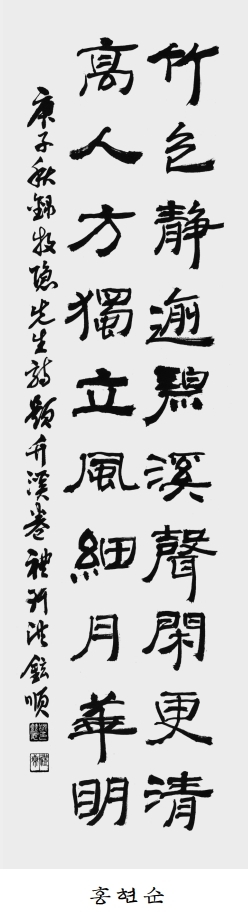 竹色靜逾碧溪聲閑更清
髙人方獨立風細月華明
庚子秋錄牧隱先生詩題竹溪卷禮竹洪鉉順
홍현순